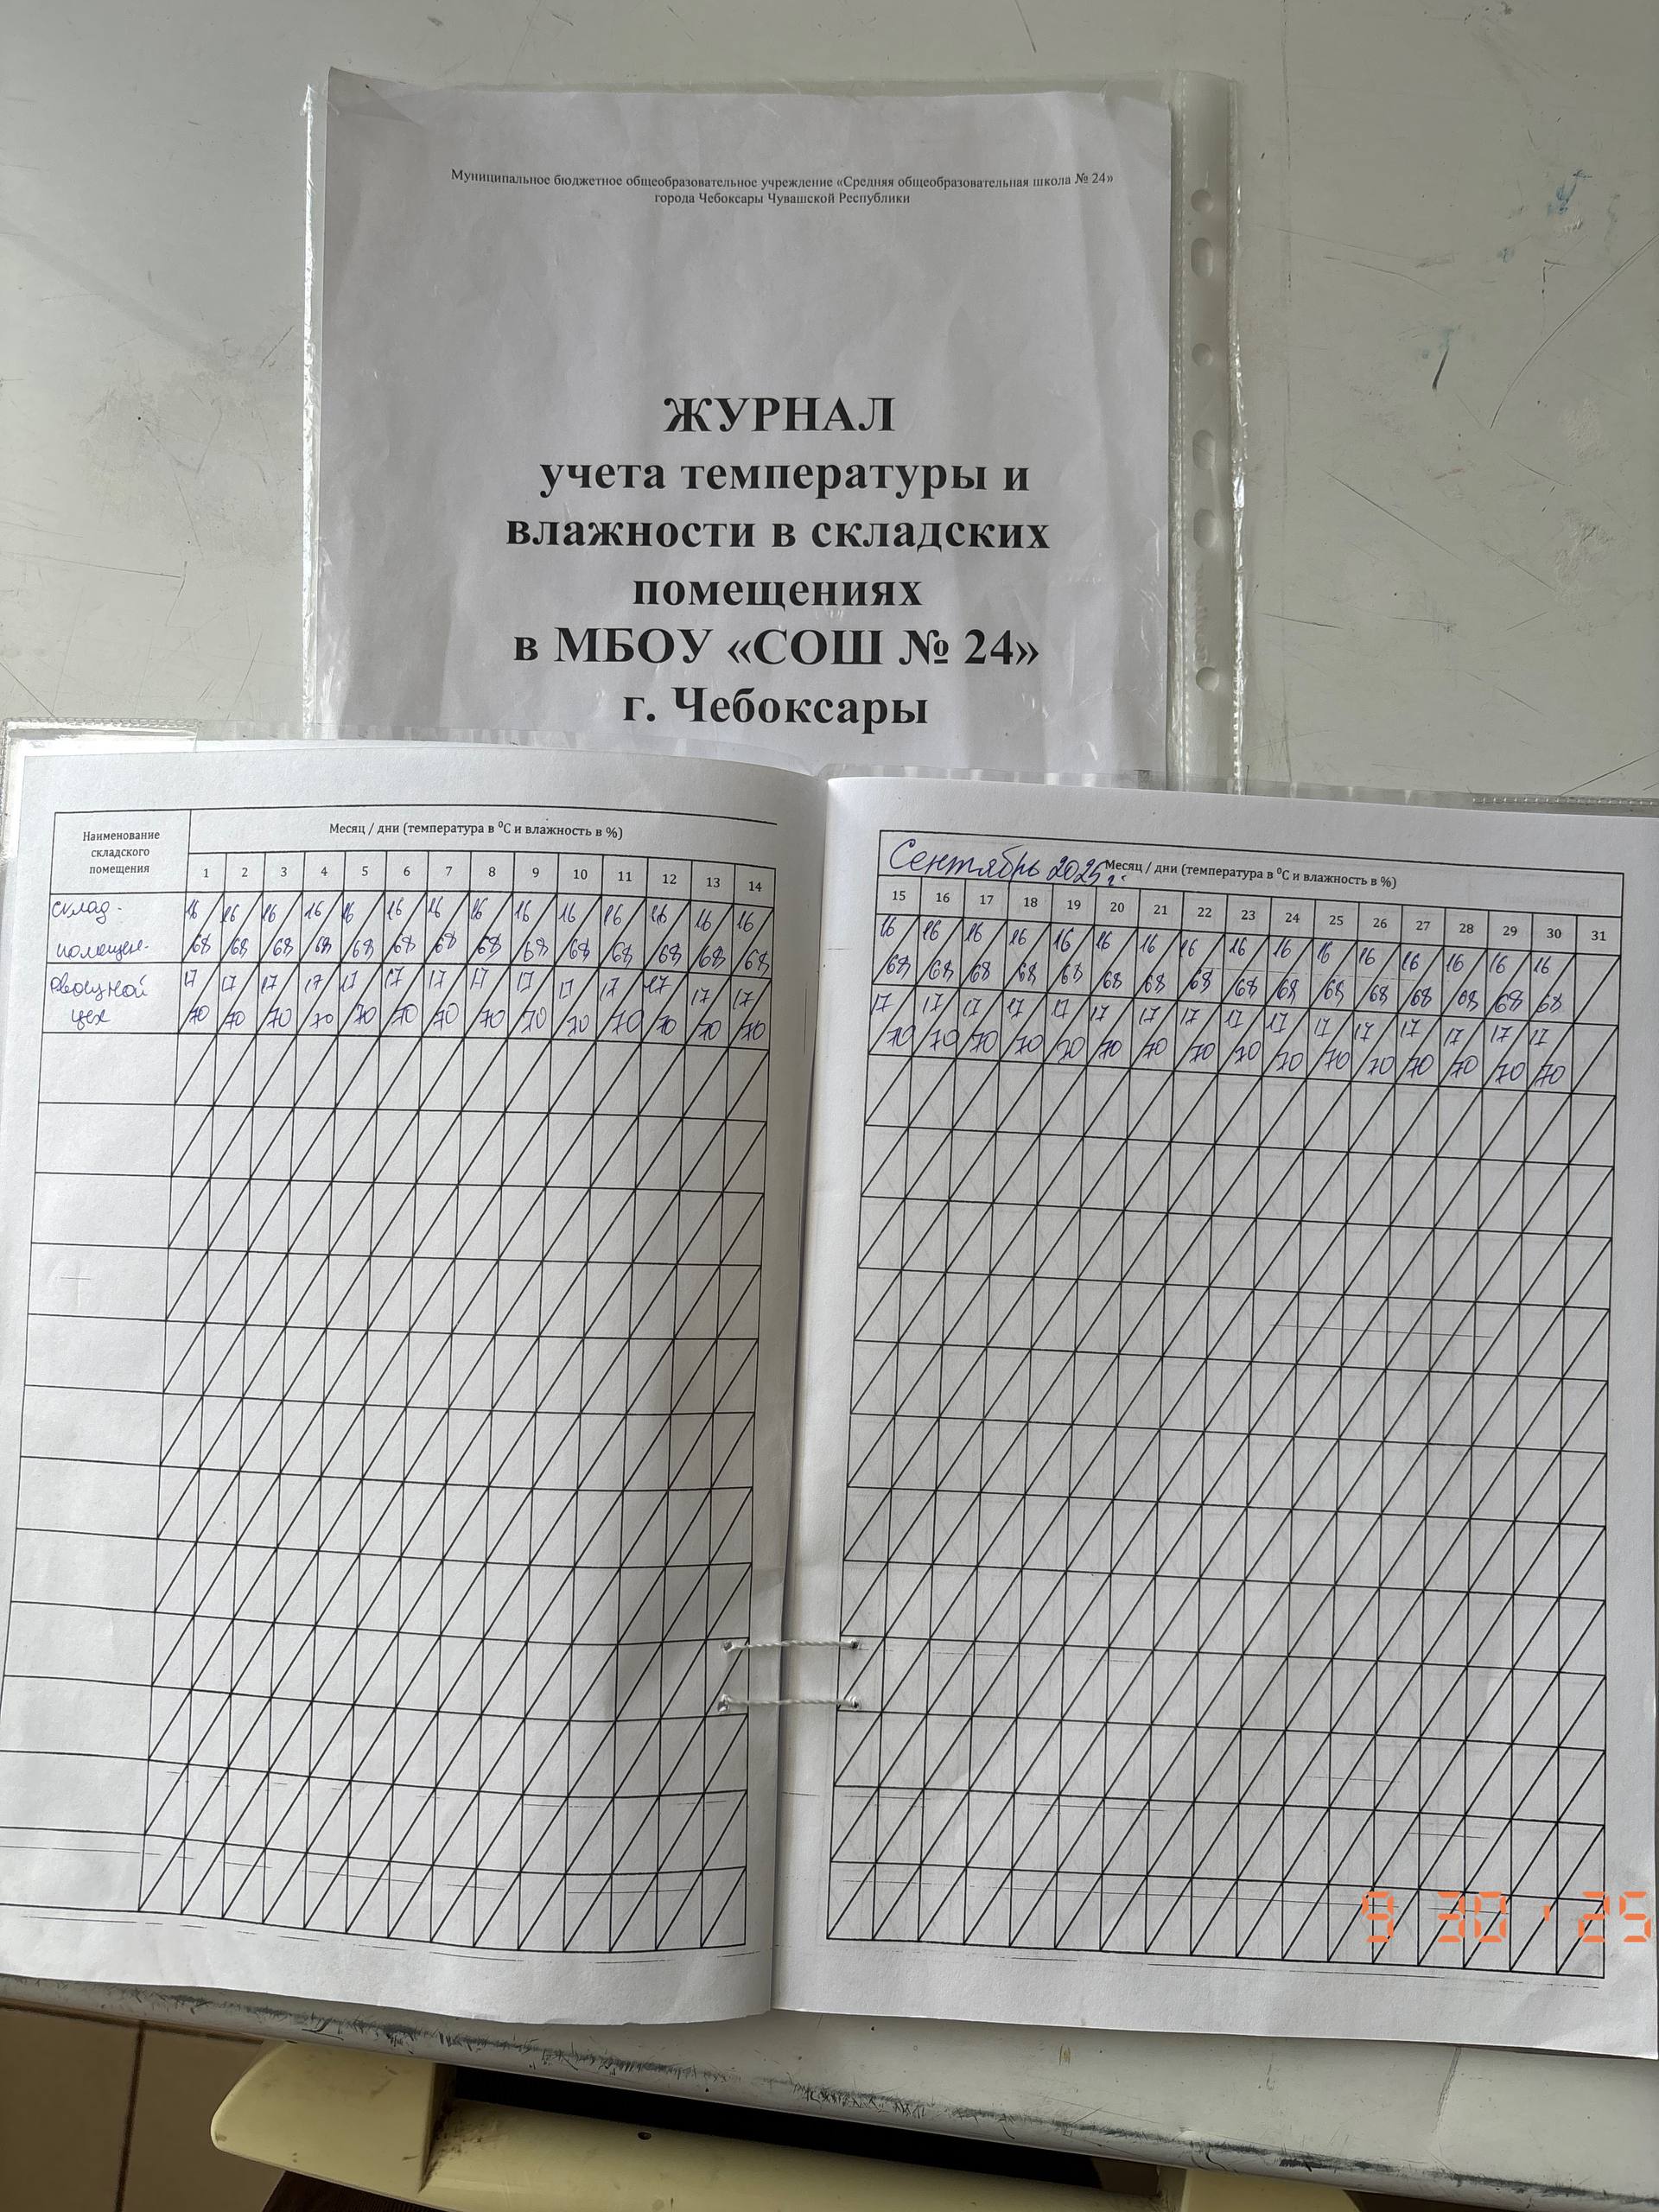 Муниципальное бюджетное общеобразовательное учреждение «Средняя общеобразовательная школа № 24»
города Чебоксары Чувашской Республики
ЖУРНАЛ
учета температуры и
влажности в складских
помещениях
в МБОУ «СОШ № 24»
г. Чебоксары
Наименование складского помещения
Месяц / дни (температура в ⁰С и влажность в %)
1 2 3 4 5 6 7 8 9 10 11 12 13 14
склад.
16 16 16 16 16 16 16 16 16 16 16 16 16 16
помещен-
68 68 68 68 68 68 68 68 68 68 68 68 68 68
Овощной
17 17 17 17 17 17 17 17 17 17 17 17 17 17
цех
70 70 70 70 70 70 70 70 70 70 70 70 70 70
Сентябрь 2025 г.
Месяц / дни (температура в ⁰С и влажность в %)
15 16 17 18 19 20 21 22 23 24 25 26 27 28 29 30 31
16 16 16 16 16 16 16 16 16 16 16 16 16 16 16 16
68 68 68 68 68 68 68 68 68 68 68 68 68 68 68 68
17 17 17 17 17 17 17 17 17 17 17 17 17 17 17 17
70 70 70 70 70 70 70 70 70 70 70 70 70 70 70 70
9 30 ' 25